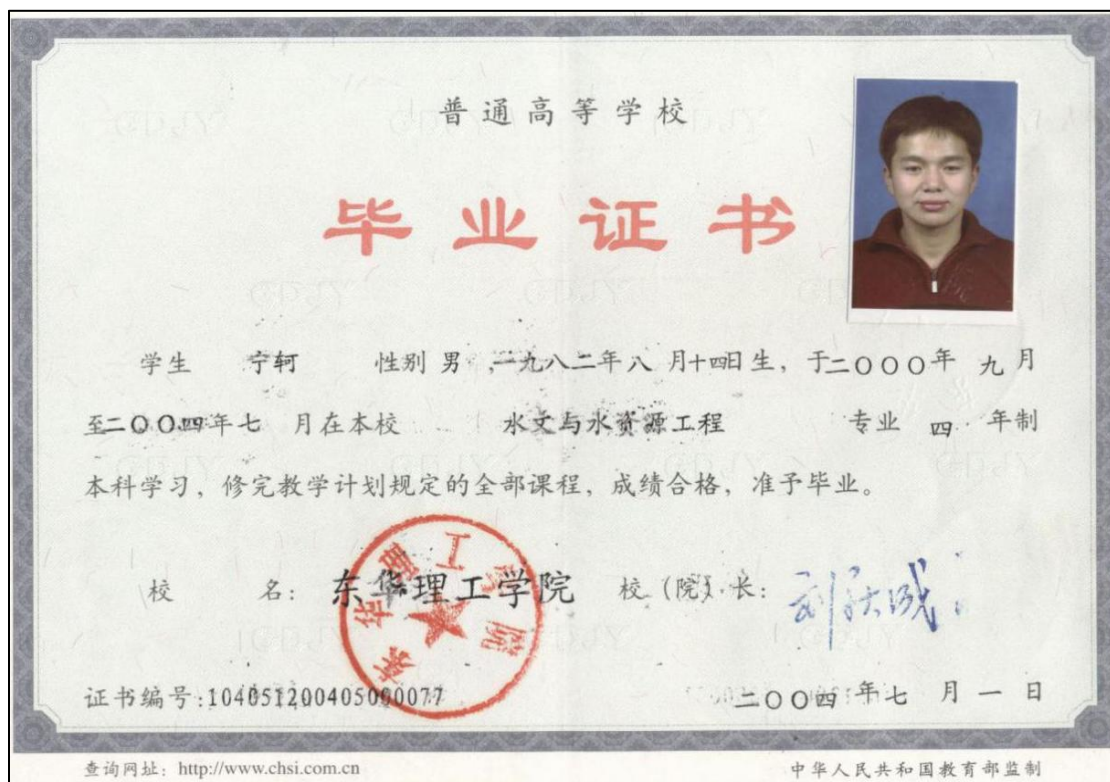 普通高等学校
毕业证书
学生 宁轲 性别 男 ,一九八二年八 月十四日生,于二〇〇〇年 九月
至二〇〇四年七 月在本校 水文与水资源工程 专业 四 年制
本科学习,修完教学计划规定的全部课程,成绩合格,准予毕业。
校 名: 东华理工学院 校(院)长:
东华理工学院
证书编号:104051200405000077 二〇〇四年七 月一日
查询网址: http://www.chsi.com.cn 中华人民共和国教育部监制